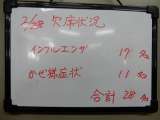 欠席状況
インフルエンザ 17名
かぜ様症状 11名
合計 28名